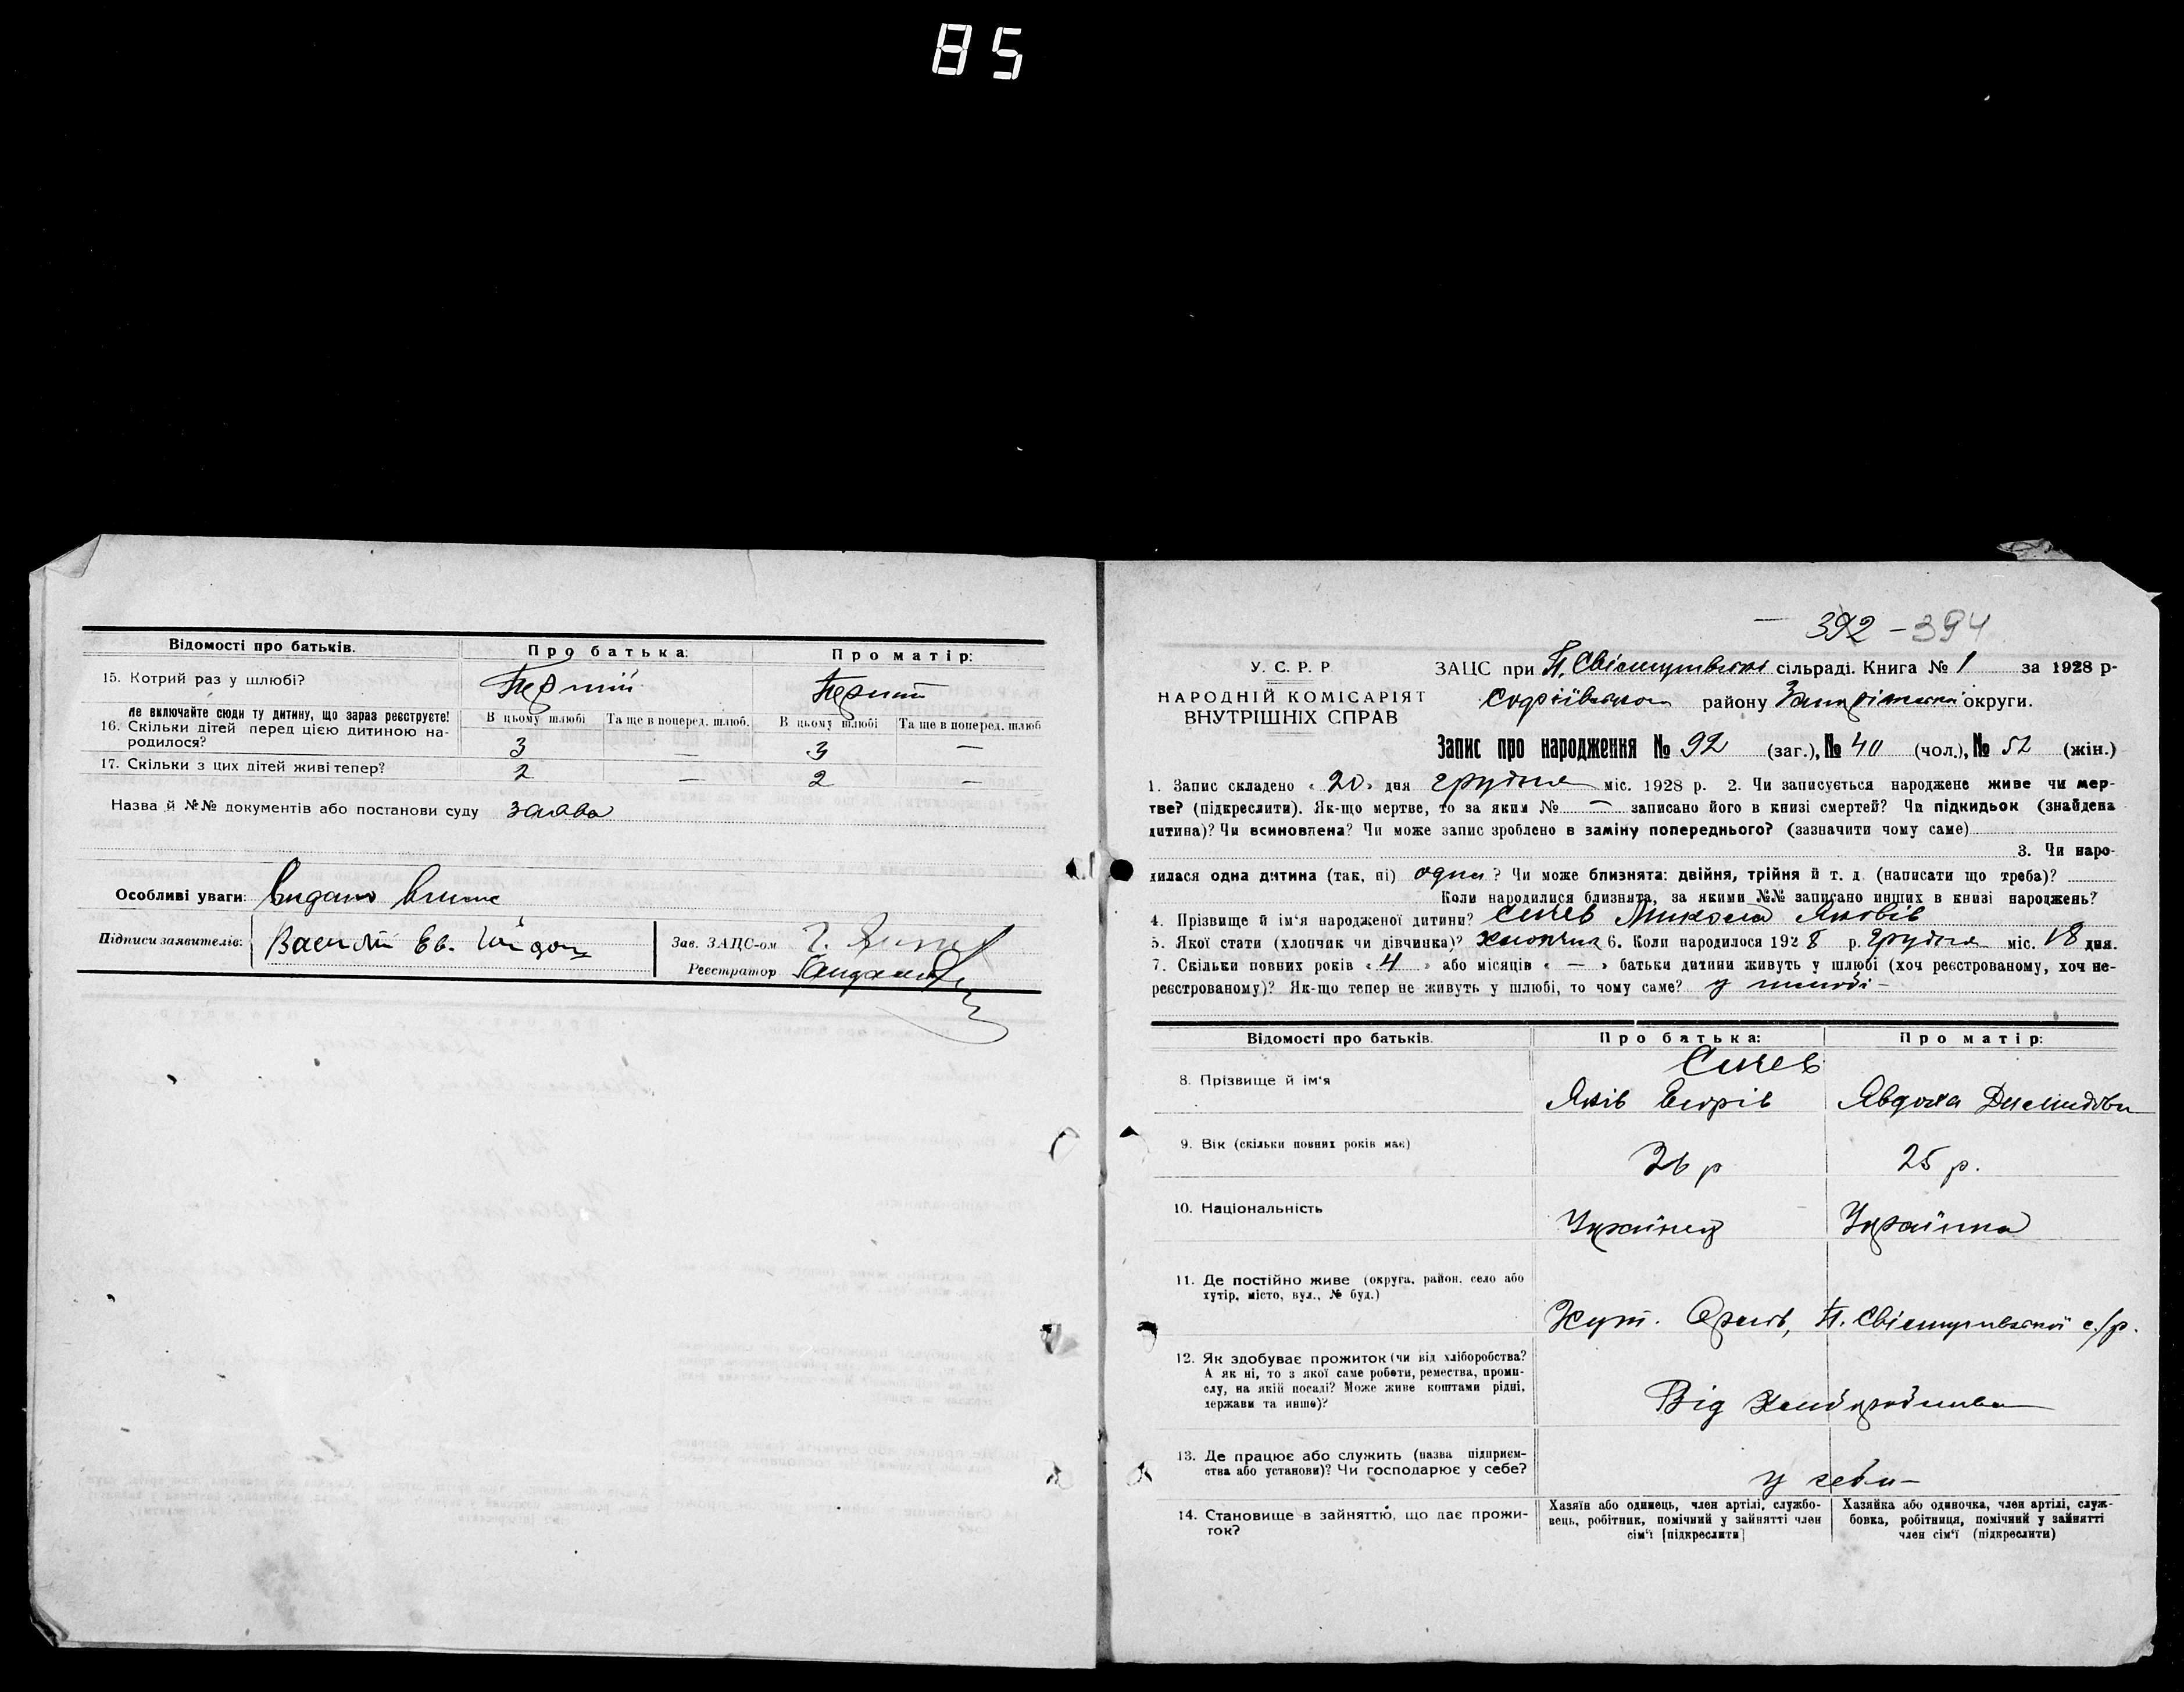 85
Відомості про батьків. Про батька: Про матір:
15. Котрий раз у шлюбі? Перший Перший
Не включайте сюди ту дитину, що зараз реєструєте!
В цьому шлюбі Та ще в поперед. шлюб. В цьому шлюбі Та ще в поперед. шлюб
16. Скільки дітей перед цією дитиною на-
родилося? 3 — 3 —
17. Скільки з цих дітей живі тепер? 2 — 2 —
Назва й №№ документів або постанови суду заява
Особливі уваги: видано
Підписи заявителів:
Зав. ЗАЦС-ом
Реєстратор
392 - 394
У. С. Р. Р.
НАРОДНІЙ КОМІСАРІЯТ
ВНУТРІШНІХ СПРАВ
ЗАЦС при П. Свістунівській сільраді. Книга № 1 за 1928 р-
Софіївського району Запорізької округи.
Запис про народження № 92 (заг.), № 40 (чол.), № 52 (жін.)
1. Запис складено « 20 » дня грудня міс. 1928 р. 2. Чи записується народжене живе чи мер-
тве? (підкреслити). Як-що мертве, то за яким № — записано його в книзі смертей? Чи підкидьок (знайдена
дитина)? Чи всиновлена? Чи може запис зроблено в заміну попереднього? (зазначити чому саме)
3. Чи наро-
дилася одна дитина (так, ні) одна? Чи може близнята: двійня, трійня й т. д. (написати що треба)?
Коли народилися близнята, за якими №№ записано инших в книзі народжень?
4. Прізвище й ім'я народженої дитини? Микола Яковів
5. Якої стати (хлопчик чи дівчинка)? хлопчик 6. Коли народилося 1928 р. грудня міс. 18 дня.
7. Скільки повних років « 4 » або місяців « — » батьки дитини живуть у шлюбі (хоч реєстрованому, хоч не-
реєстрованому)? Як-що тепер не живуть у шлюбі, то чому саме? у шлюбі -
Відомості про батьків. Про батька: Про матір:
8. Прізвище й ім'я
Яків Явдоха
9. Вік (скільки повних років має)
26 р 25 р.
10. Національність
Українец Українка
11. Де постійно живе (округа, район, село або
хутір, місто, вул., № буд.)
Хут. П. Свістунівської с./р.
12. Як здобуває прожиток (чи від хліборобства?
А як ні, то з якої саме роботи, ремества, проми-
слу, на якій посаді? Може живе коштами рідні,
держави та инше)?
Від хліборобства
13. Де працює або служить (назва підприєм-
ства або установи)? Чи господарює у себе?
у себе -
14. Становище в зайняттю, що дає прожи-
ток?
Хазяїн або одинець, член артілі, службо-
вець, робітник, помічний у зайнятті член
сім'ї [підкреслити]
Хазяйка або одиночка, член артілі, служ-
бовка, робітниця, помічний у зайнятті
член сім'ї (підкреслити)